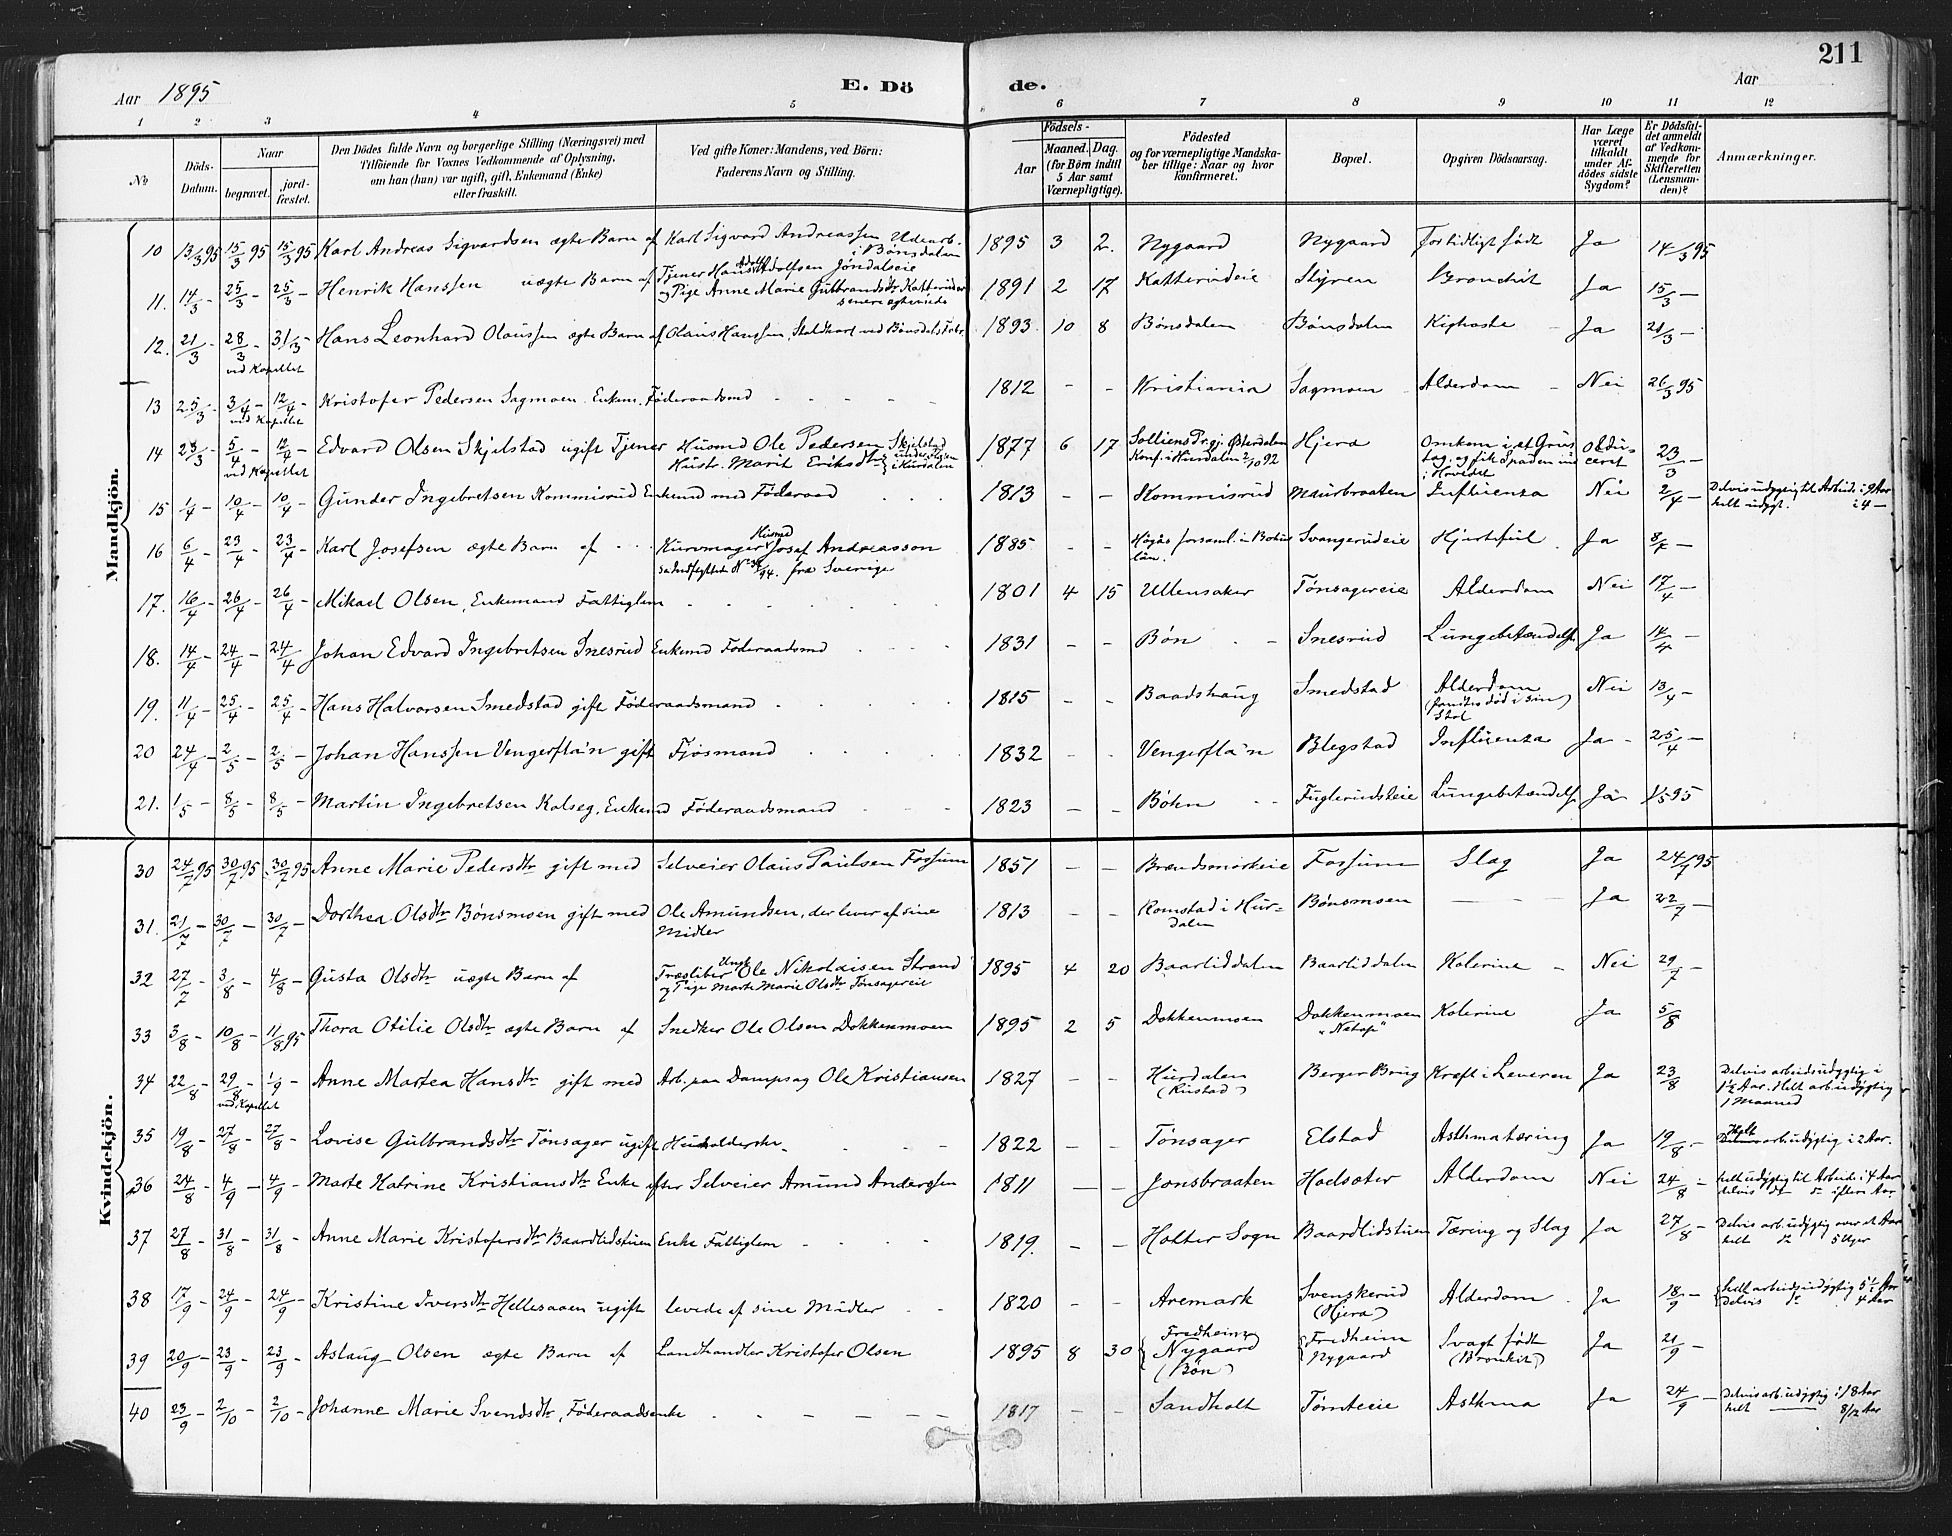 211
Aar 1895 E. Dö de. Aar
1 2 3 4 5 6 7 8 9 10 11 12
No Döds-Datum. Naar begravet. jord-fæstet. Den Dödes fulde Navn og borgerlige Stilling (Næringsvei) med Tilföiende for Voxnes Vedkommende af Oplysning, om han (hun) var ugift, gift, Enkemand (Enke) eller fraskilt. Ved gifte Koner: Mandens, ved Börn: Faderens Navn og Stilling. Födsels- Aar Maaned. Dag. (for Börn indtil 5 Aar samt Værnepligtige). Födested og for værnepligtige Mandskaber tillige: Naar og hvor konfirmeret. Bopæl. Opgiven Dödsaarsag. Har Læge været tilkaldt under Afdödes sidste Sygdom? Er Dödsfaldet anmeldt af Vedkommende for Skifteretten (Lensmanden)? Anmærkninger.
Mandkjön.
10 13/3 95 15/3 95 15/3 95 Karl Andreas Sigvardsen ægte Barn af Karl Sigvard Andreassen Udearb. i Bønsdalen 1895 3 2. Nygaard Nygaard For tidligt født Ja 14/3 95
11. 14/3 - 25/3 - 25/3 - Henrik Hanssen uægte Barn af Tjener Hans Adolf Adolfsen Jøndalseie og Pige Anne Marie Gulbrandsdtr Katterudeie senere ægtevied 1891 2 17 Katterudeie Styren Bronchit Ja 15/3 -
12. 21/3 - 28/3 - 31/3 - ved Kapellet Hans Leonhard Olaussen ægte Barn af Olaus Hanssen, Staldkarl ved Bønsdals Fabr. 1893. 10 8 Bønsdalen Bønsdalen Kighoste - Ja 21/3 -
13 25/3 - 3/4 - 12/4 - ved Kapellet Kristofer Pedersen Sagmoen Enkem. Føderaadsmd 1812 - - Kristiania Sagmoen Alderdom - Nei 26/3 95
14 23/3 - 5/4 - 12/4 - ved Kapellet Edvard Olsen Skjelstad ugift Tjener Husmd Ole Pedersen Skjelstad Hustr. Marit Eriksdtr i Hurdalen 1877 6 17 Solliens Pr.gj. Østerdalen Konf. i Hurdalen 2/10 92 Hjera Omkom i et Grustag, og fik Spaden ind i Hovedet 23/3 -
15 1/4 - 10/4 - 10/4 - Gunder Ingebretsen Kommisrud Enkemd med Føderaad 1813 - - Kommisrud Maurbraaten Influenza Nei 2/4 - Delvis udygtig til Arbeide i 9 Aar helt udygt. i 4 -
16 6/4 - 23/4 - 23/4 - Karl Josefsen ægte Barn af Kurvmager Husmd Josef Andreasson fra Sverige 1885 - - Högås församl. i Bohus län. Svangerudeie Hjertefeil. Ja 8/4 -
17. 16/4 - 26/4 - 26/4 - Mikael Olsen, Enkemand Fattiglem 1801 4 15 Ullensaker Tønsagereie Alderdom Nei 17/4 -
18. 14/4 - 24/4 - 24/4 - Johan Edvard Ingebretsen Snesrud Enkemd Føderaadsmd 1831 - - Bøn - Snesrud Lungebetændels. Ja 14/4 -
19. 11/4 - 25/4 - 25/4 - Hans Halvorsen Smedstad gift Føderaadsmand 1815 - - Baadshaug Smedstad Alderdom (fandtes død i sin Stol) Nei 13/4 -
20 24/4 - 2/5 - 2/5 - Johan Hanssen Vengerflåʼn gift Fjøsmand 1832 - - Vengerflåʼn Blegstad Influenza Ja - 25/4 -
21. 1/5 - 8/5 - 8/5 - Martin Ingebretsen Kolseg, Enkemd Føderaadsmand 1823 - - Bøhn Fuglerudseie Lungebetændels. Ja 1/5 95
Kvindekjön.
30 24/7 95 30/7 95 30/7 95 Anne Marie Pedersdtr gift med Selveier Olaus Paulsen Fossum 1851 - - Brændsmorkeie Fossum Slag Ja 24/7 95
31. 21/7 - 30/7 - 30/7 - Dorthea Olsdtr Bønsmoen gift med Ole Amundsen, der lever af sine Midler 1813 - - Romstad i Hurdalen Bønsmoen - - - Ja 22/7 -
32 27/7 - 3/8 - 4/8 - Gusta Olsdtr uægte Barn af Træsliber Ungk. Ole Nikolaisen Strand og Pige Marte Marie Olsdtr Tønsagereie 1895 4 20 Baarliddalen Baarliddalen Kolerine - Nei 29/7 -
33 3/8 - 10/8 - 11/8 95 Thora Otilie Olsdtr ægte Barn af Snedker Ole Olsen Dokkenmoen 1895 2 5 Dokkenmoen Dokkenmoen Kolerine Ja 5/8
34 22/8 - 29/8 - 1/9 - ved Kapellet Anne Martea Hansdtr gift med Arb. paa Dampsag Ole Kristiansen 1827 - - Hurdalen (Rustad) Berger Brug Kræft i Leveren Ja 23/8 Delvis arbeidsudygtig i 1 1/2 Aar. Helt arb.udygtig 1 Maaned
35 19/8 - 27/8 - 27/8 - Lovise Gulbrandsdtr Tønsager ugift Husholderske 1822 - - Tønsager Elstad Asthmatæring Ja 19/8 - Helt arb.udygtig i 2 Aar.
36 24/8 - 4/9 - 4/9 - Marte Katrine Kristiansdtr Enke efter Selveier Amund Anderssen 1811 - - Jonsbraaten Hodsæter Alderdom Nei 24/8 - helt udygtig til Arbeide i 4 Aar delvis dt do i flere Aar
37 27/8 - 31/8 - 31/8 - Anne Marie Kristofersdtr Baardlidstuen Enke Fattiglem 1819. - - Holter Sogn Baardlidstuen Tæring og Slag Ja 27/8 - Delvis arb.udygtig over et Aar helt do 5 Uger
38 17/9 - 24/9 - 24/9 - Kristine Iversdtr Hellesaaen ugift levede af sine Midler 1820 - - Aremark Svenskerud (Hjera) Alderdom. Ja 18/9 - helt arbeidsudygtig 5 1/2 Aar Delvis do 4 Aar
39 20/9 - 23/9 - 23/9 - Aslaug Olsen ægte Barn af Landhandler Kristofer Olsen 1895 8 30 Fredheim Nygaard (Bøn) Fredheim Nygaard Svagt født (Bronkit) Ja 21/9 -
40 23/9 - 2/10 - 2/10 - Johanne Marie Svendsdtr, Føderaadsenke 1817 - - Sandholt Tømteeie Asthma Ja 24/9 - Delvis arb.udygtig i 18 Aar helt 8/12 Aar